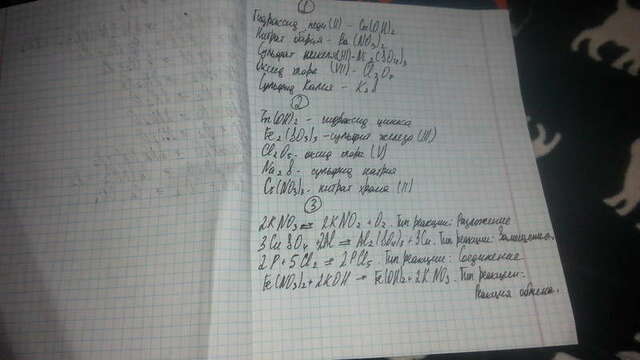 1
Гидроксид меди (II) - Cu(OH)2
Нитрат бария - Ba(NO3)2
Сульфат никеля (III) - Ni2(SO4)3
Оксид хлора (VII) - Cl2O7
Сульфид калия - K2S
2
Zn(OH)2 - гидроксид цинка
Fe2(SO3)3 - сульфит железа (III)
Cl2O5 - оксид хлора (V)
Na2S - сульфид натрия
Cr(NO3)2 - нитрат хрома (II)
3
2KNO3 = 2KNO2 + O2. Тип реакции: Разложение
3CuSO4 + 2Al = Al2(SO4)3 + 3Cu. Тип реакции: Замещение.
2P + 5Cl2 = 2PCl5. Тип реакции: Соединение
Fe(NO3)2 + 2KOH = Fe(OH)2 + 2KNO3. Тип реакции:
Реакция обмена.